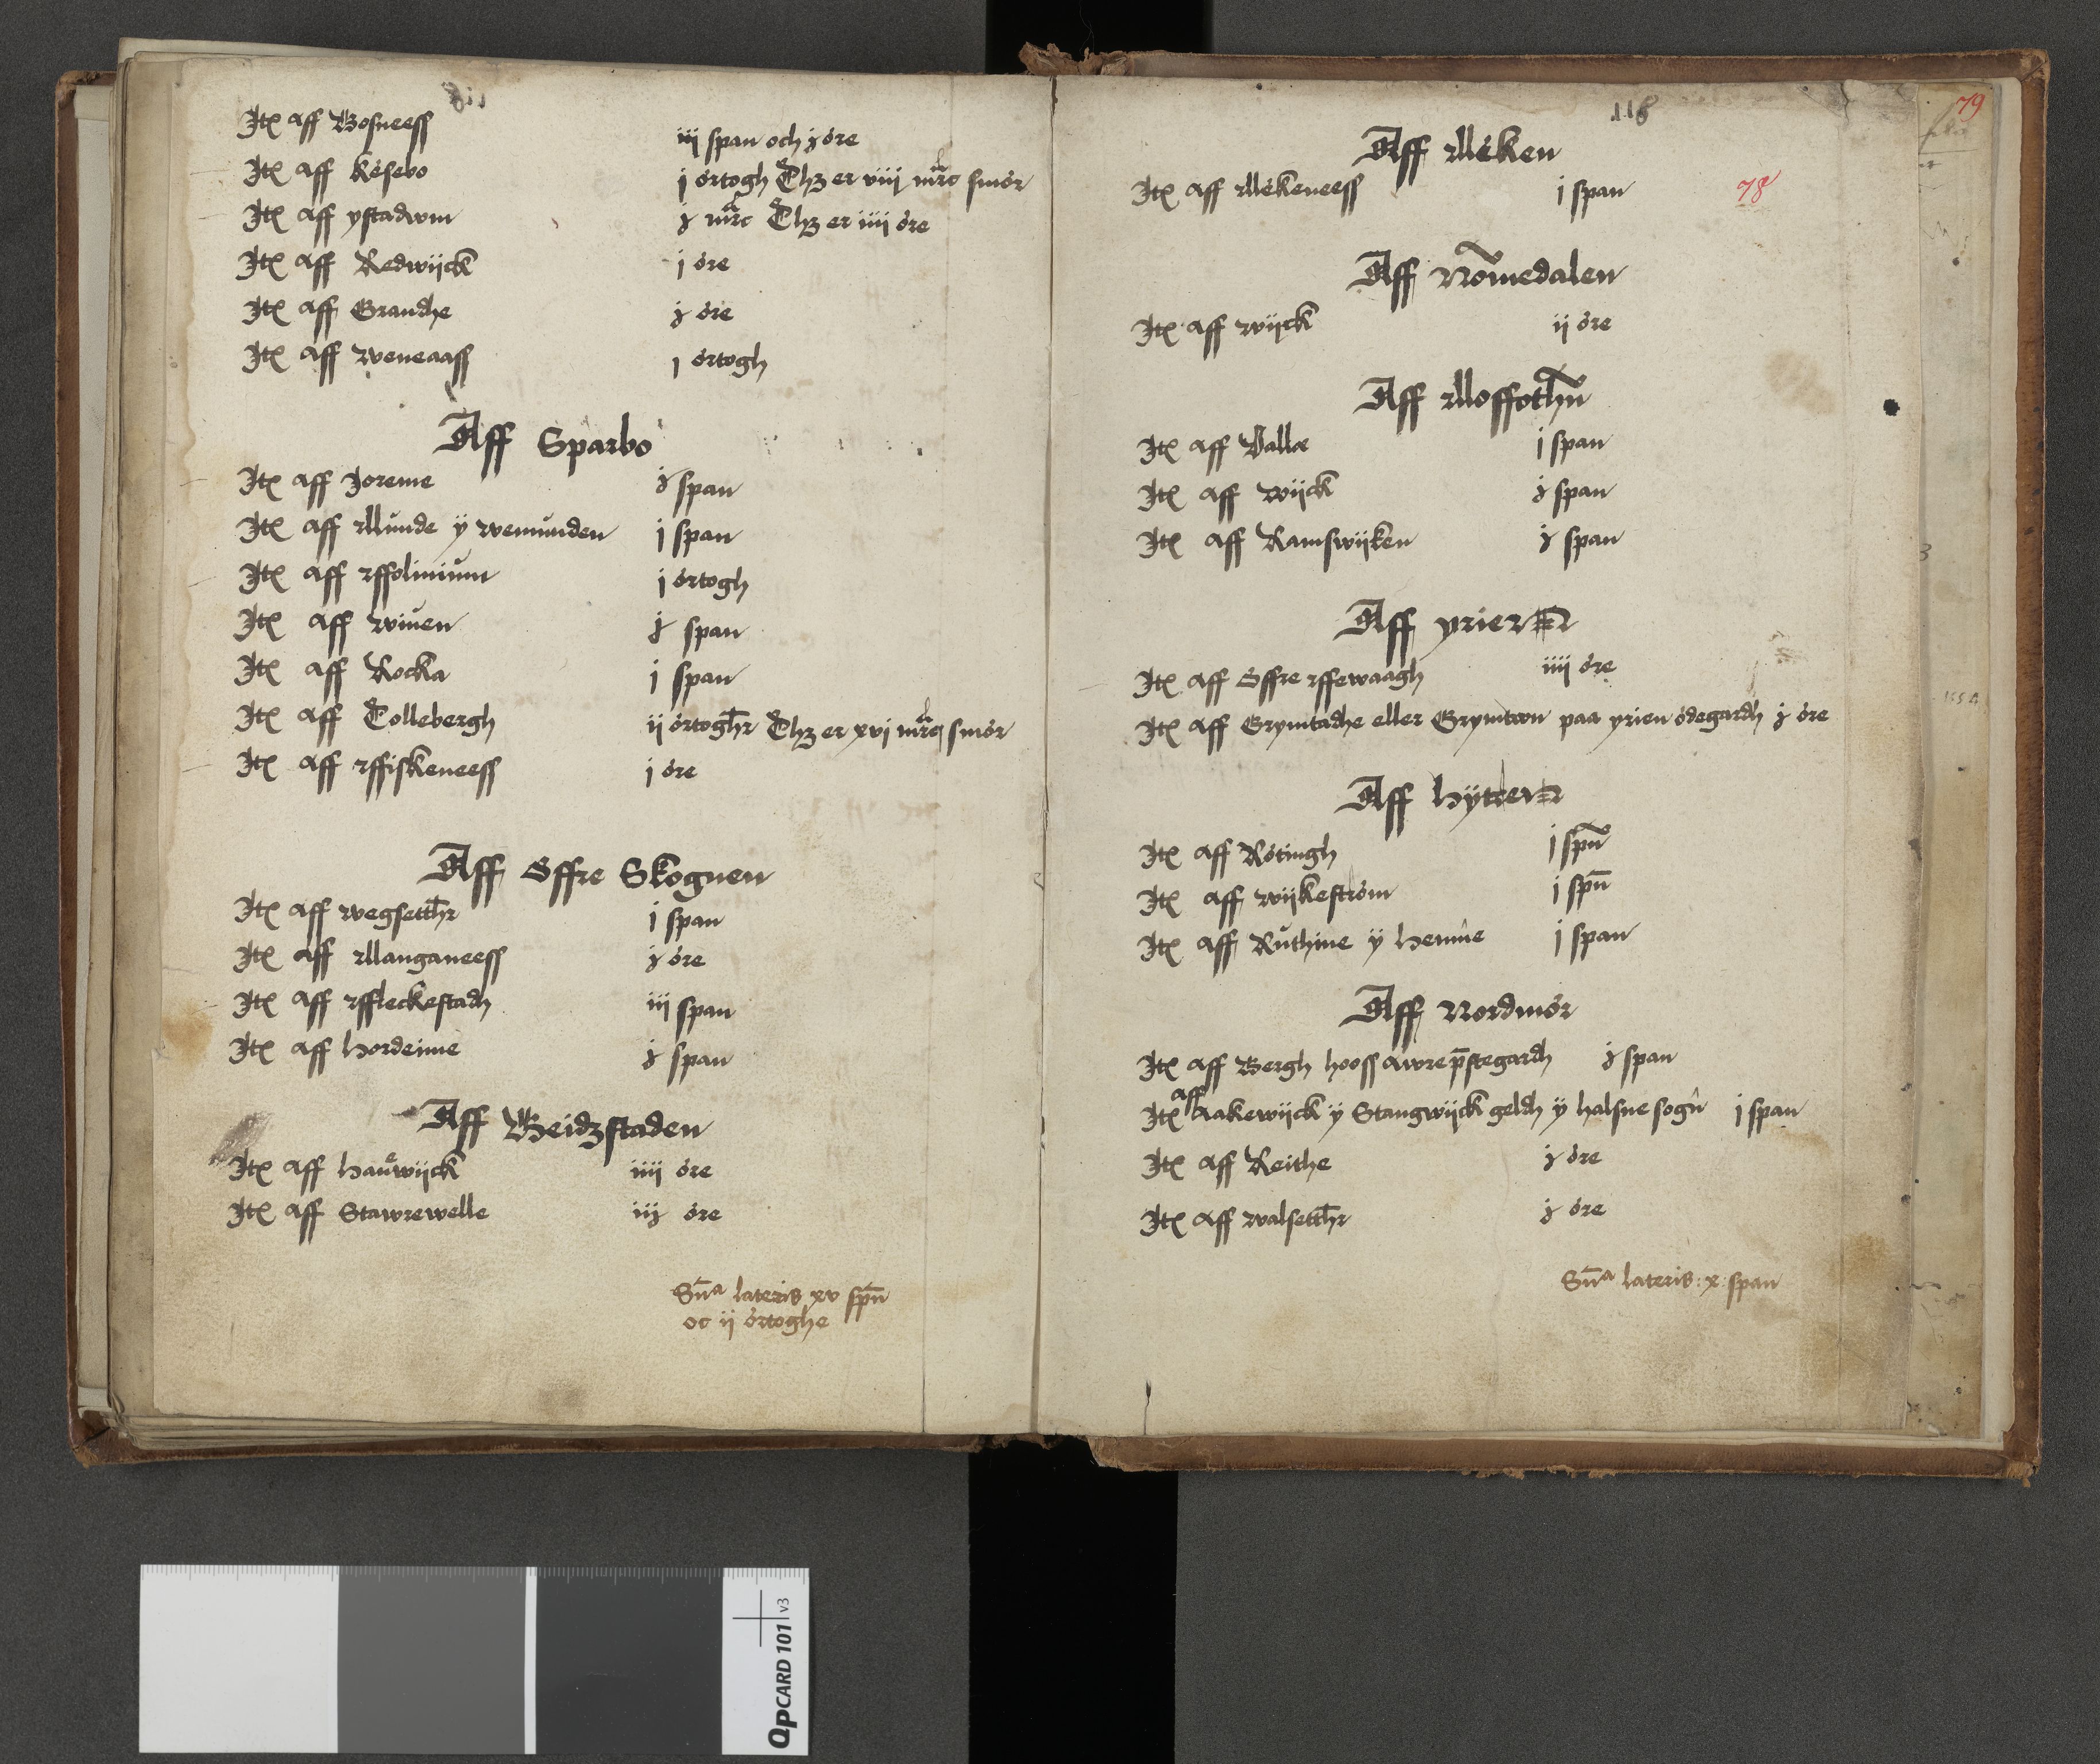 Itē aff Bosneess iij span och j óre
Itē aff késebo j órtogh Thz er viij mrc smór
Itē aff ystadwm j mrc Thz er iiij óre
Itē aff Redwijck j óre
Itē aff Grandhe j óre
Itē aff weneaass j órtogh
Aff Sparbo
Itē aff Joreme j span
Itē aff Munde ÿ wemunden j span
Itē aff ffolinium j órtogh
Itē aff wiuen j span
Itē aff Rocka j span
Itē aff Tollebergh ij órtoghr Thz er xvj mrc smór
Itē aff ffiskeneess j óre
Aff Óffre Skognen
Itē aff wegsetthr j span
Itē aff Manganeess j óre
Itē aff ffleckestadh iij span
Itē aff hordeime j span
Aff Beidzstaden
Itē aff hauewijck iiij óre
Itē aff Stawrewelle iij óre
Sūᵃ lateris xv spn̄
oc ij órtoghe
118
79
Aff Méken
Itē aff Mékeneess j span
78
Aff Nōmedalen
Itē aff wijck ij óre
Aff Moffothn̄
Itē aff Valla j span
Itē aff wijck j span
Itē aff Ramswijken j span
Aff yrier
Itē aff Óffre ffewaagh iiij óre
Itē aff Grymtadhe eller Grymtwn paa yrien ódegardh j óre
Aff hÿtter
Itē aff Rótingh j spn̄
Itē aff wijkestróm j spn̄
Itē aff Ruthine ÿ henne j span
Aff Nordmór
Itē aff Bergh hooss awre p̄stegardh j span
Itē aff Aakewijck ÿ Stangwijck geldh ÿ halsne sogn̄ j span
Itē aff Reithe j óre
Itē aff walsetthr j óre
Sūᵃ lateris : x : span
QpCARD 101 v3